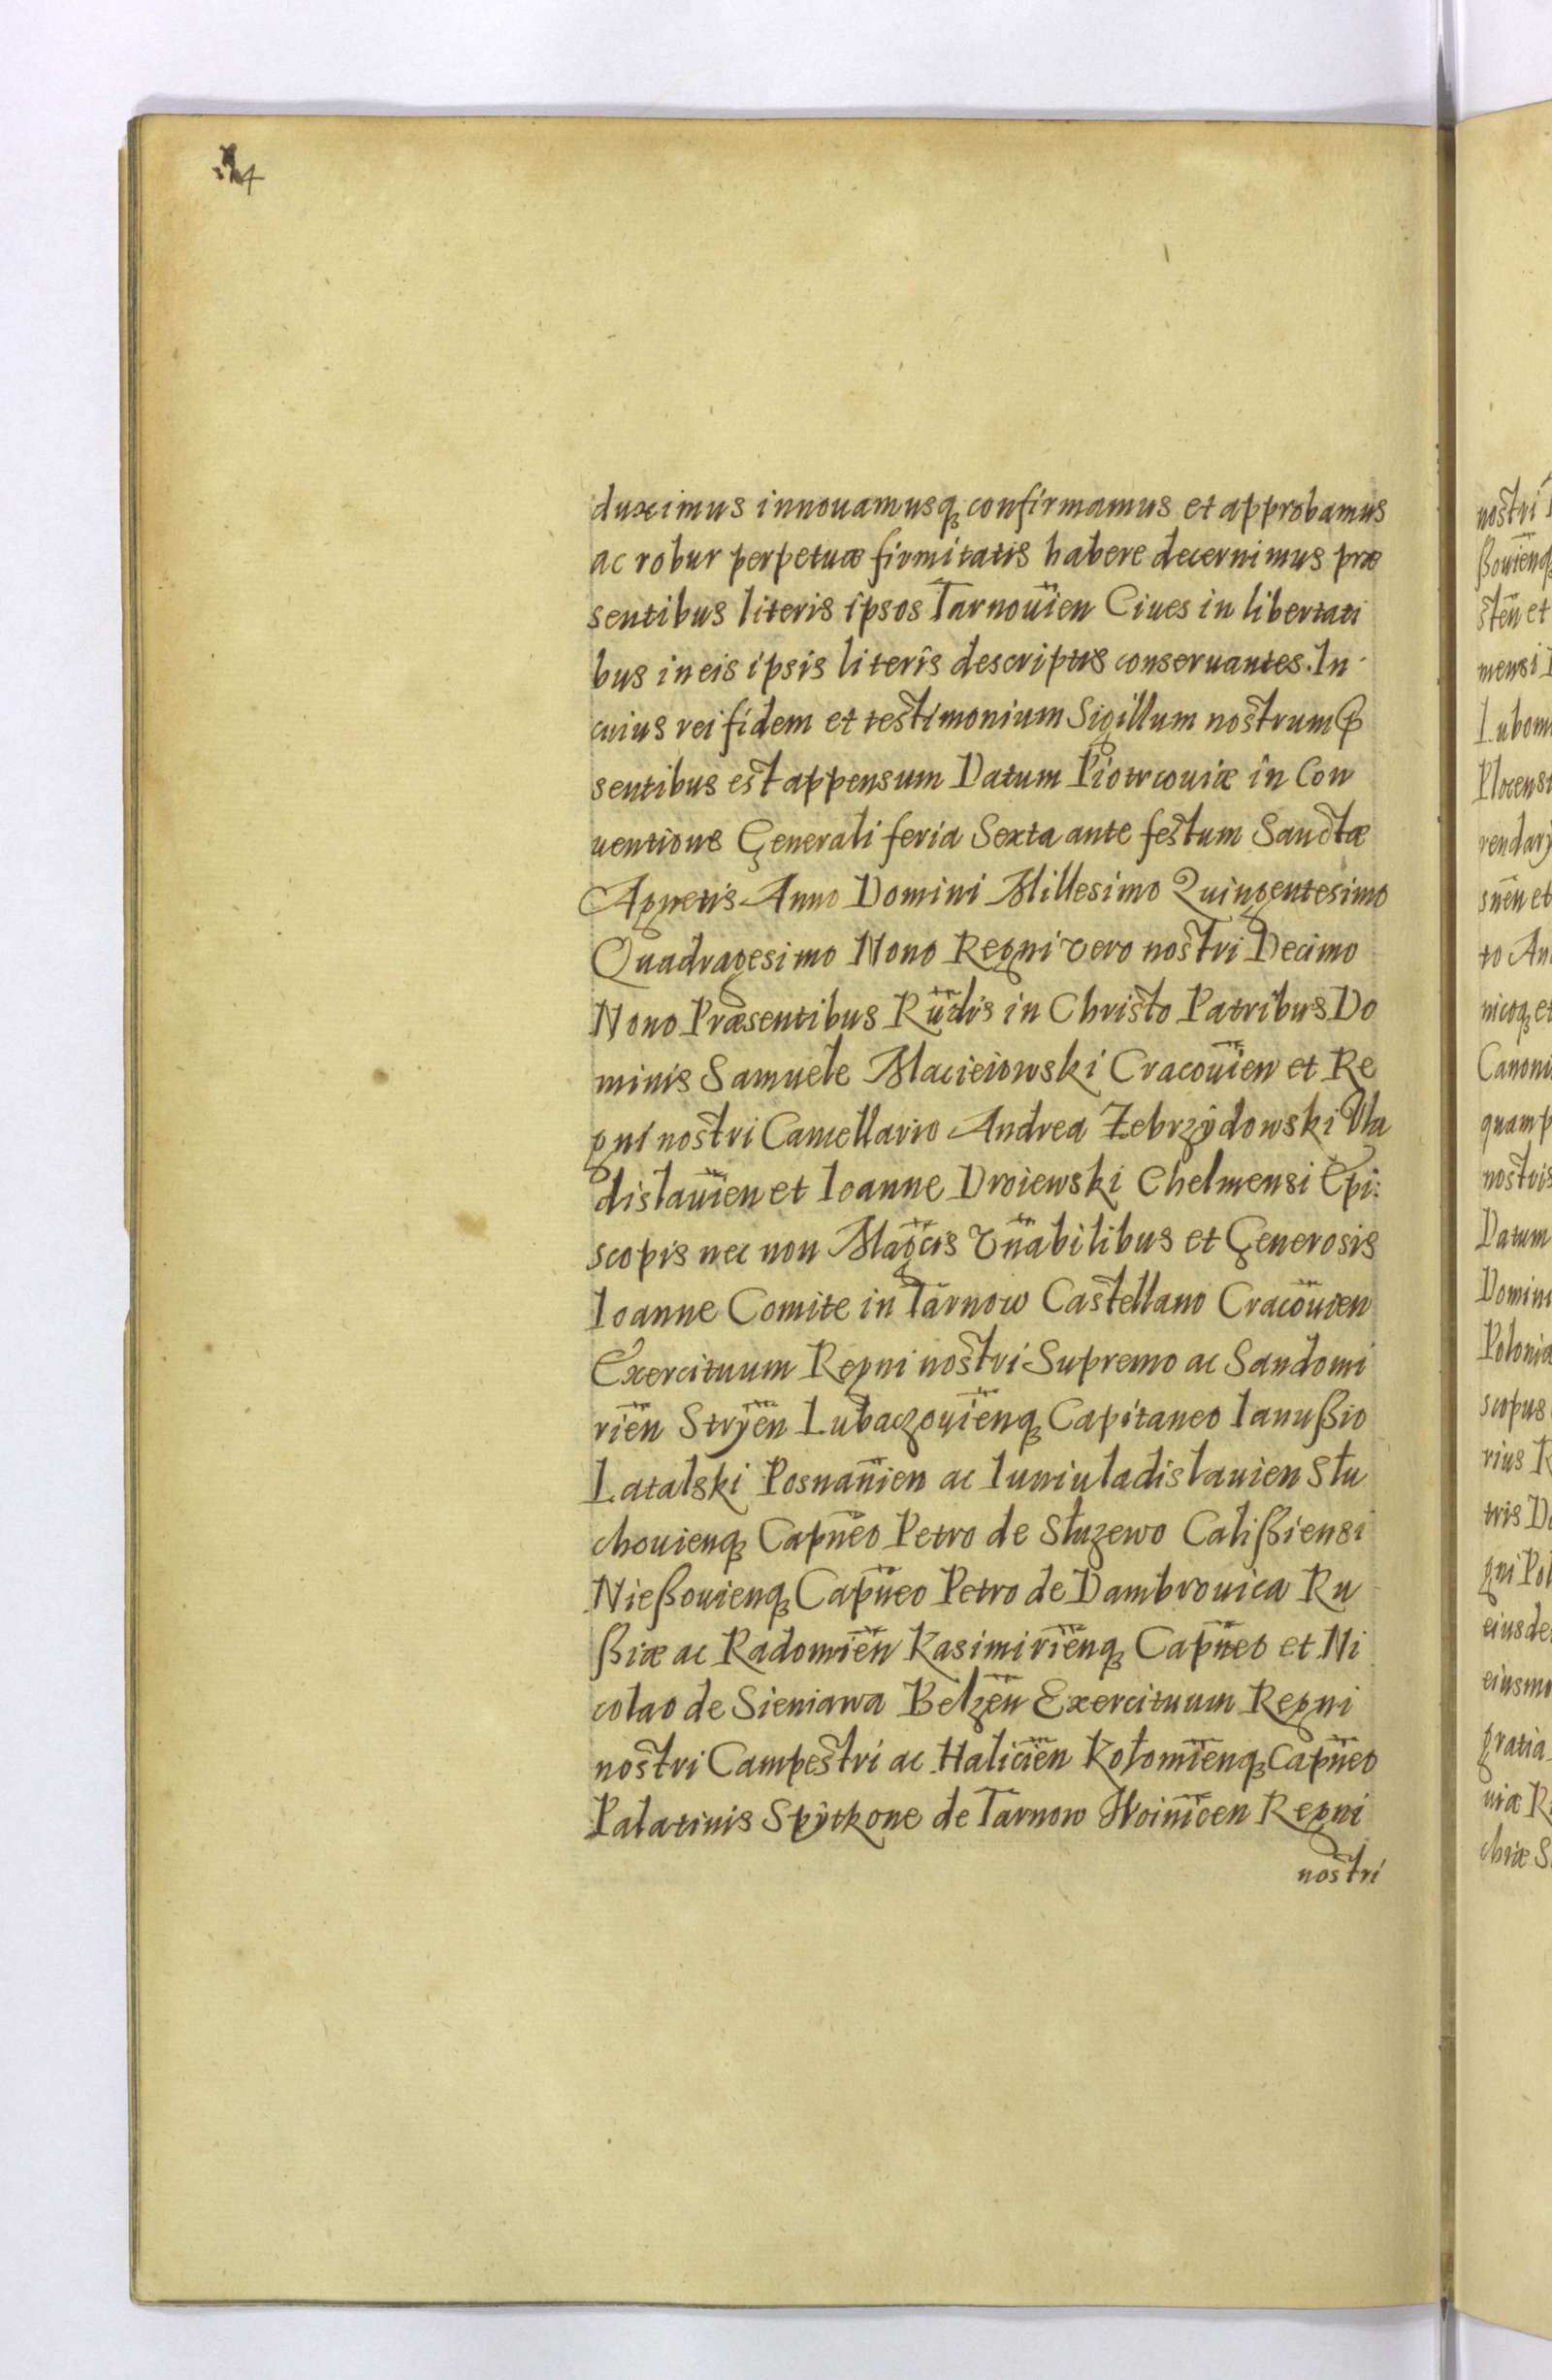 duximus innouamusq confirmamus et approbamus
ac robur perpetuæ firmitatis habere decernimus præ
sentibus literis ipsos Tarnouien Ciues in libertati
bus in eis ipsis literis descriptis conseruantes. In
cuius rei fidem et testimonium Sigillum nostrum
sentibus est appensum Datum Piotrcouiæ in Con
uentione Generali feria Sexta ante festum Sanctæ
Agnetis Anno Domini Millesimo Quingentesimo
Quadragesimo Nono Regni vero nostri Decimo
Nono Præsentibus Rudis in Christo Patribus Do
minis Samuele Macieiowski Cracouien et Re
gni nostri Cancellario Andrea Zebrzydowski Vla
dislauien et Ioanne Droiewski Chelmensi Epi:
scopis nec non Magcis Vnabilibus et Generosis
Ioanne Comite in Tarnow Castellano Cracouien
Exercituum Regni nostri Supremo ac Sandomi
rien Stryen Lubaczouienq Capitaneo Ianußio
Latalski Posnanien ac Iuniuladislauien Slu
chouienq Capneo Petro de Służewo Calißiensi
Nießouienq Capneo Petro de Dambrouica Ru
ßiæ ac Radomien Kasimirienq Capneo et Ni
colao de Sieniawa Belzen Exercituum Regni
nostri Campestri ac Halicien Kołomienq Capneo
Palatinis Spytkone de Tarnow Woinicen Regni
nostri
nostri
ßouienq
sten et
mensi
Lubom
Plocensi
rendarÿ
snen et
to An
nicoq et
Canoni
quamp
nostris
Datum
Domini
Polonia
scopus
rius R
tris D
gni Pol
eiusde
eiusmo
gratia
uiæ R
chiæ S